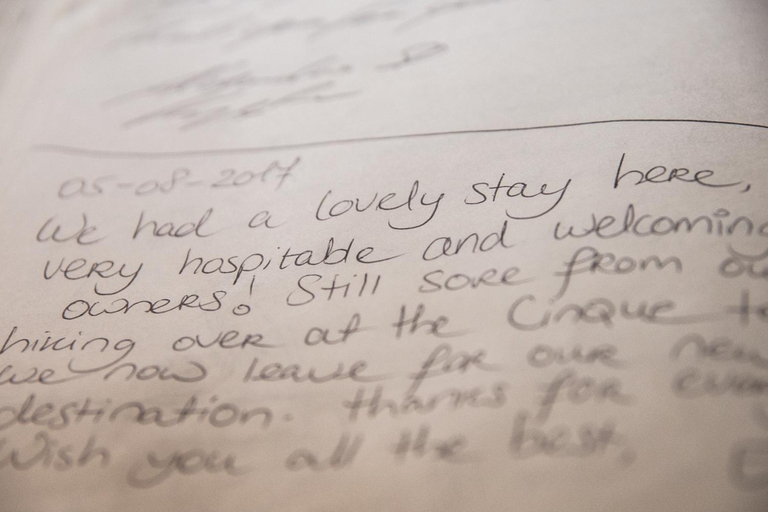 05-08-2017
We had a lovely stay here,
very hospitable and welcoming
owners! Still sore from
hiking over at the Cinque
we now leave for our new
destination. Thanks for
Wish you all the best,